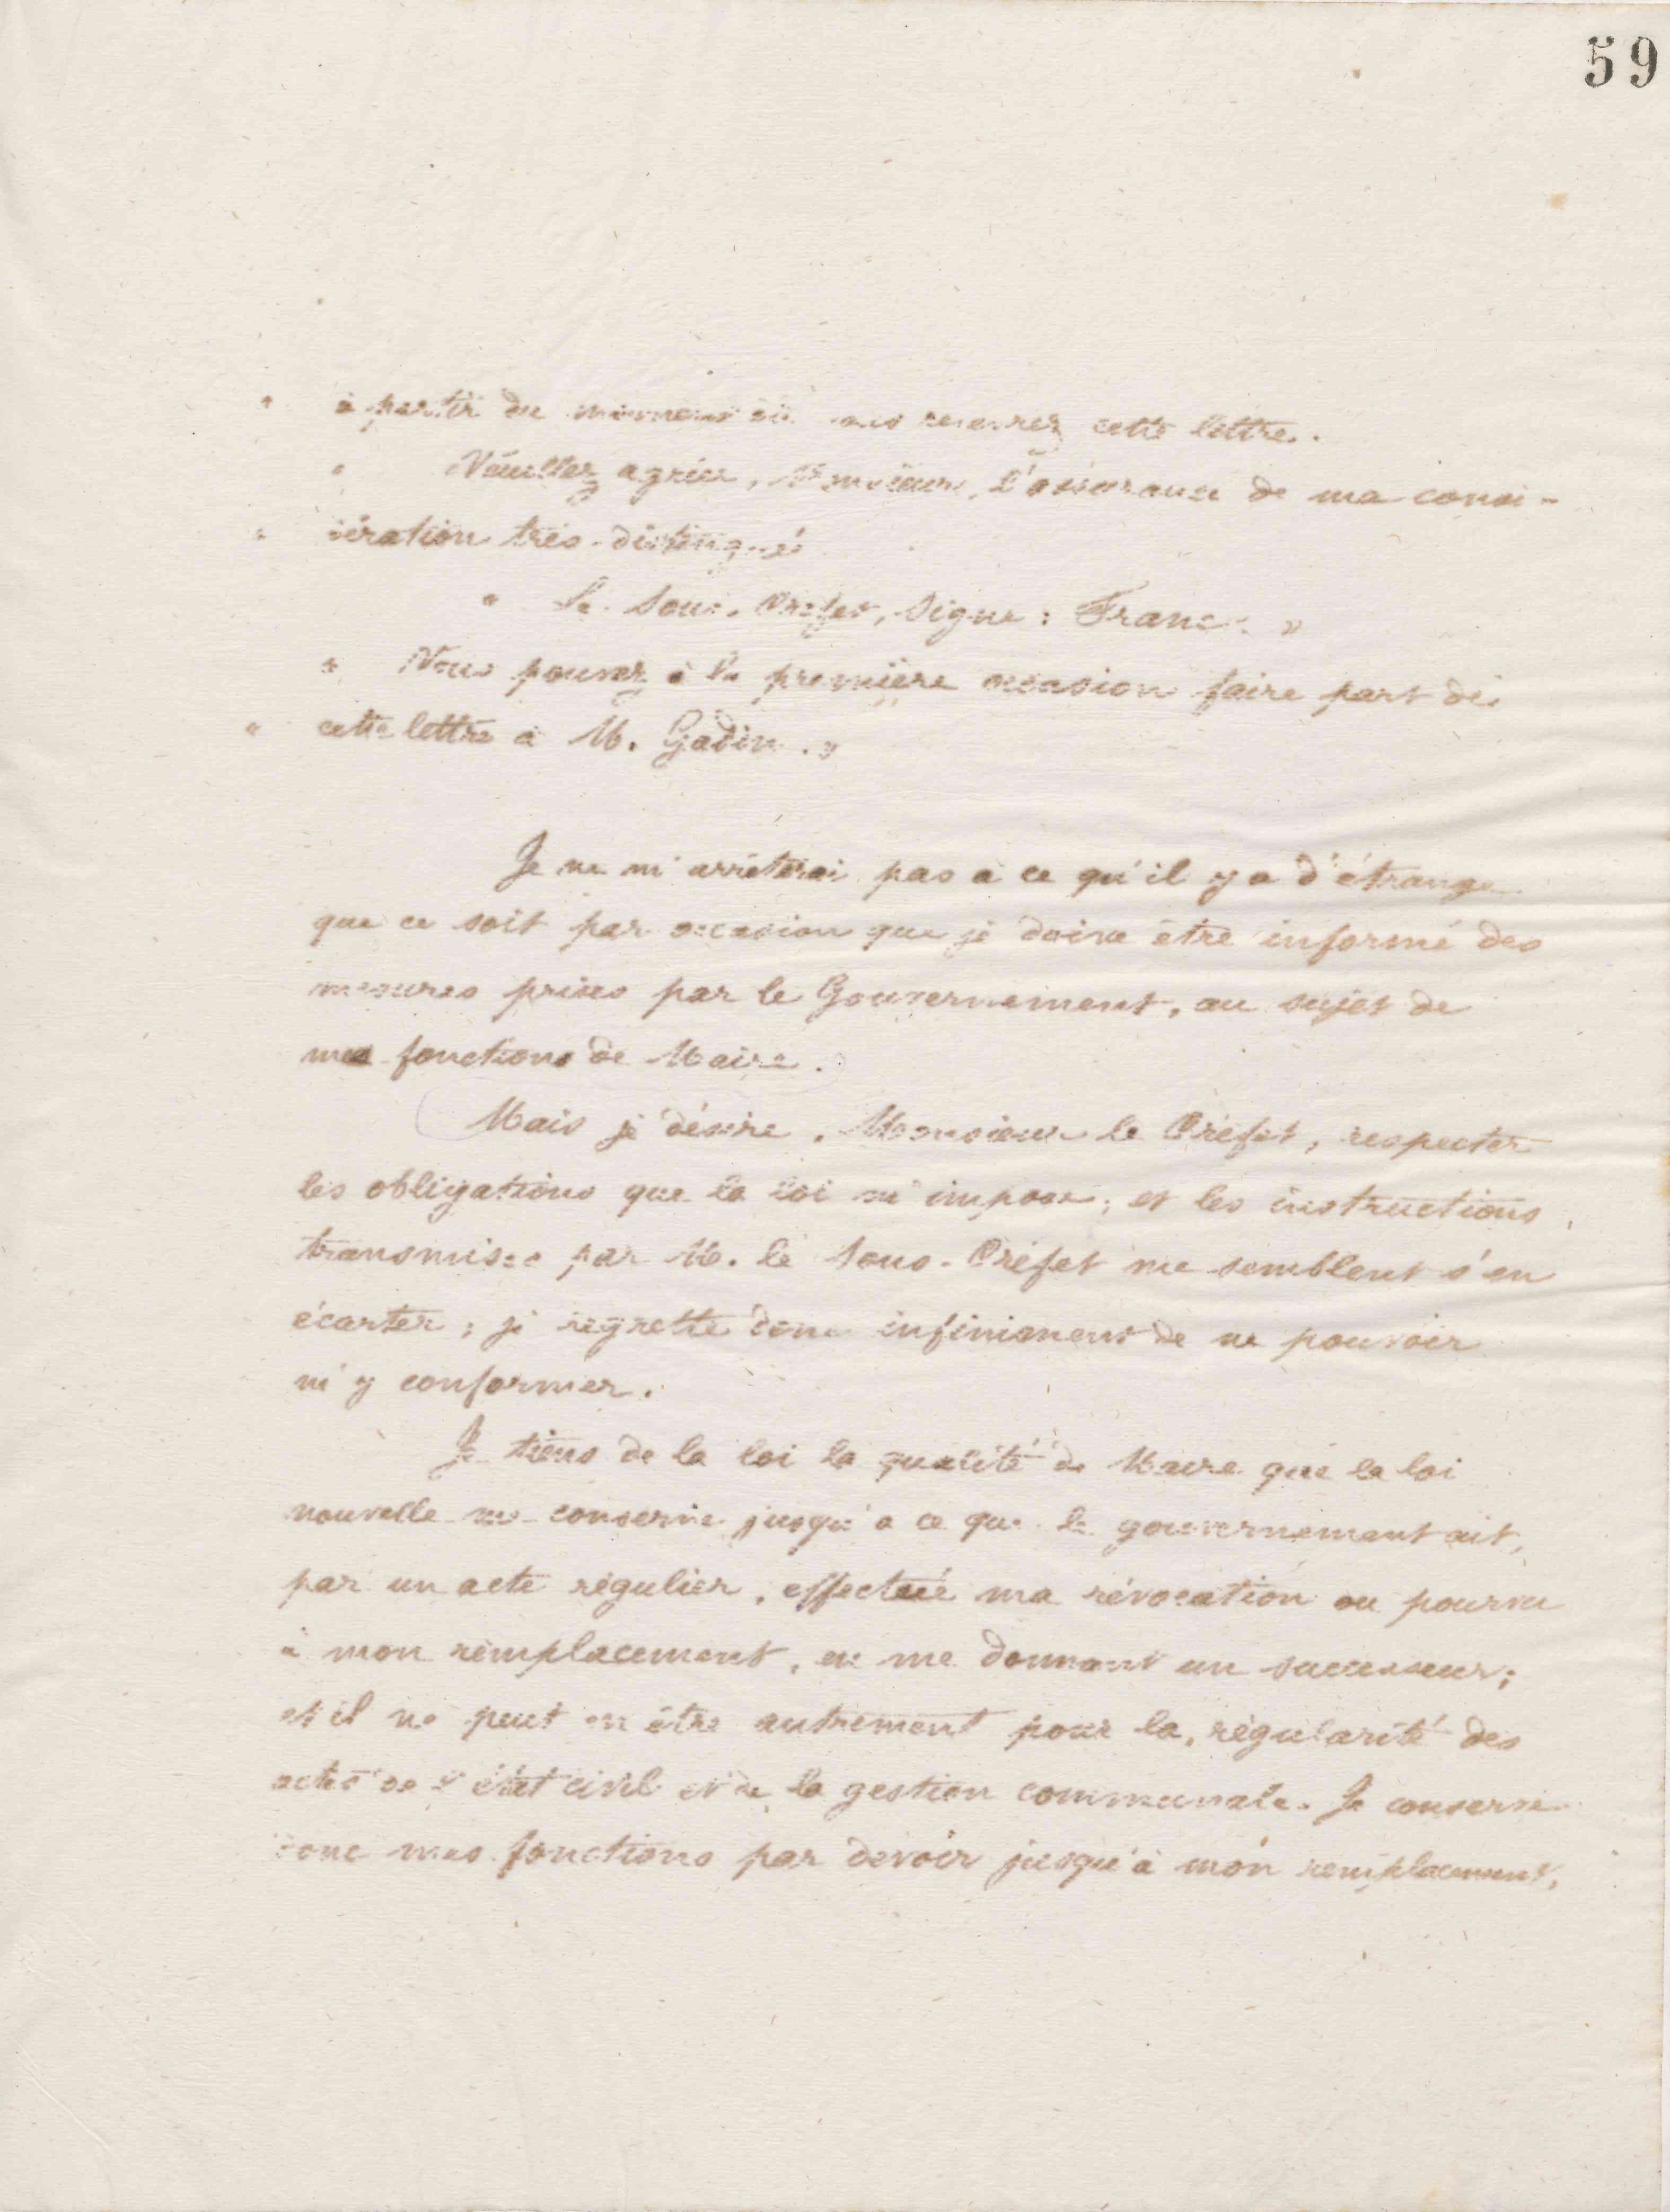 59
" à partir du moment où vous recevrez cette lettre.
" Veuillez agréer, Monsieur, l'assurance de ma consi-
" dération très-distinguée
" Le Sous-Préfet, Signé : Franc. »
" Vous pouvez à la première occasion faire part de
" cette lettre à M. Godin. »
Je ne m'arrêterai pas à ce qu'il y a d'étrange
que ce soit par occasion que je doive être informé des
mesures prises par le Gouvernement, au sujet de
mes fonctions de Maire.
Mais je désire, Monsieur le Préfet, respecter
les obligations que la loi m'impose; et les instructions,
transmises par M. le Sous-Préfet me semblent s'en
écarter; je regrette donc infiniment de ne pouvoir
m'y conformer.
Je tiens de la loi la qualité de Maire que la loi
nouvelle me conserve jusqu'à ce que le gouvernement ait,
par un acte régulier, effectué ma révocation ou pourvu
à mon remplacement, en me donnant un successeur;
et il ne peut en être autrement pour la régularité des
actes de l'état civil et de la gestion communale. Je conserve
donc mes fonctions par devoir jusqu'à mon remplacement,